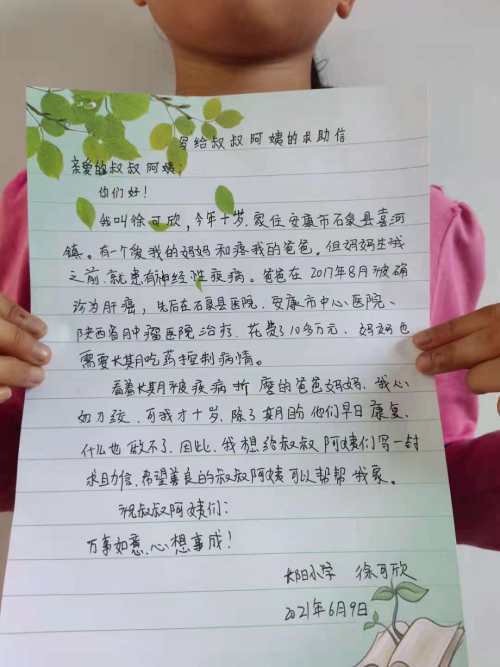 写给叔叔阿姨的求助信
亲爱的叔叔阿姨:
你们好!
我叫徐可欣,今年十岁.家住安康市石泉县喜河
镇。有一个爱我的妈妈和疼我的爸爸.但妈妈生我
之前.就患有神经性疾病。爸爸在2017年8月被确
诊为肝癌,先后在石泉县医院.安康市中心医院、
陕西省肿瘤医院治疗.花费了10多万元.妈妈也
需要长期吃药控制病情。
看着长期被疾病折磨的爸爸妈妈.我心
如刀绞.可我才十岁.除了期盼他们早日康复.
什么也做不了.因此.我想给叔叔阿姨们写一封
求助信.希望善良的叔叔阿姨可以帮帮我家。
祝叔叔阿姨们:
万事如意.心想事成!
小学 徐可欣
2021年6月9日